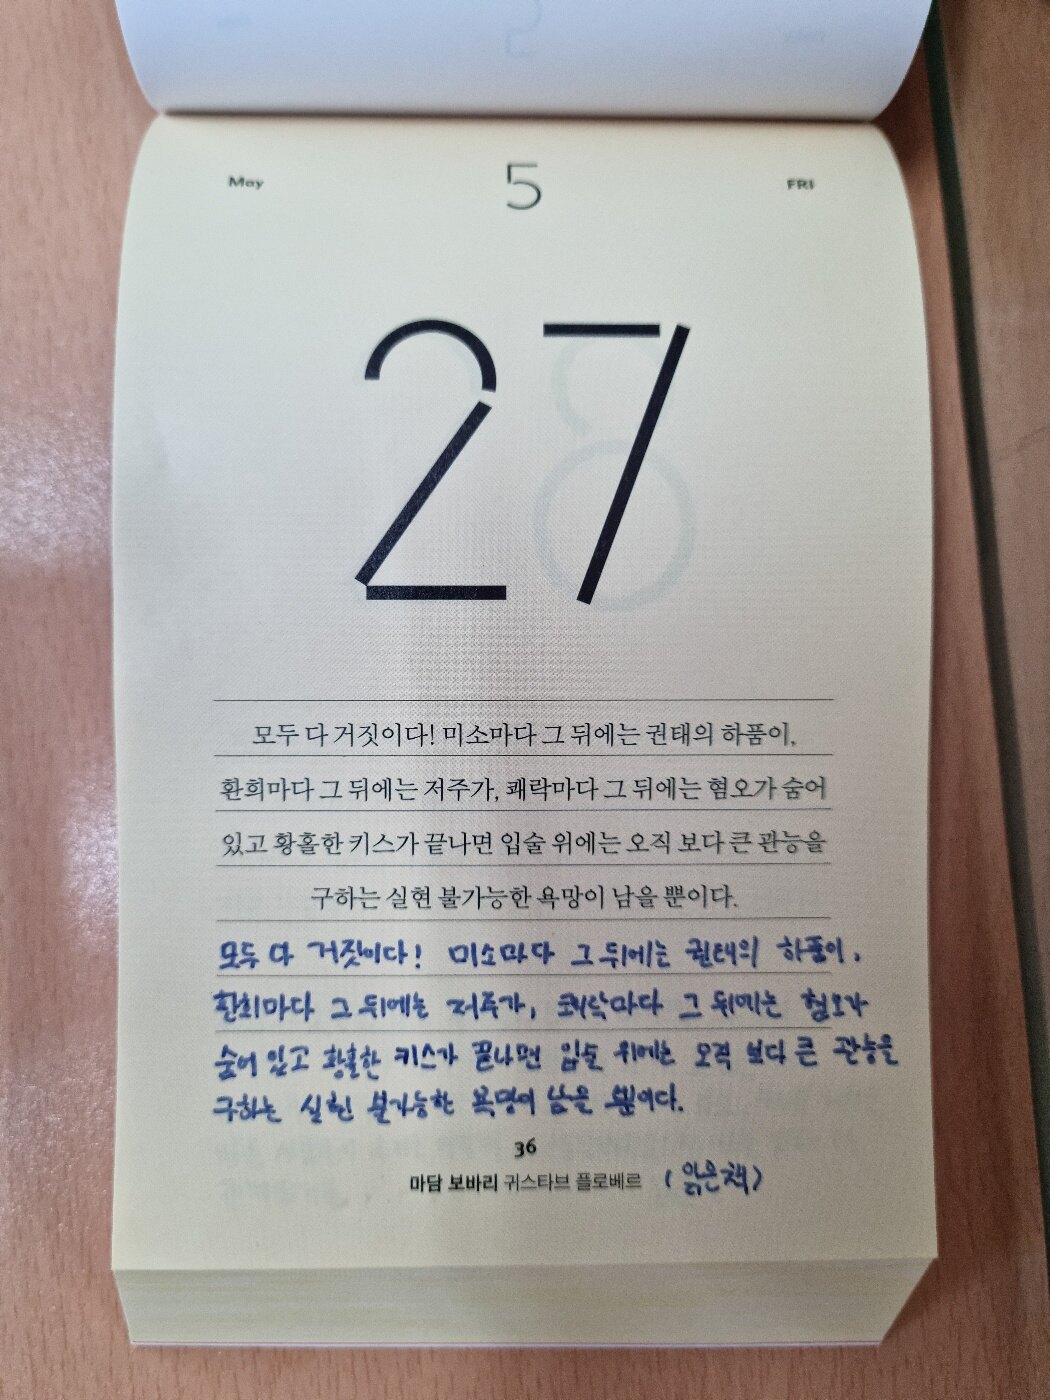 May 5 FRI
27
모두 다 거짓이다! 미소마다 그 뒤에는 권태의 하품이,
환희마다 그 뒤에는 저주가, 쾌락마다 그 뒤에는 혐오가 숨어
있고 황홀한 키스가 끝나면 입술 위에는 오직 보다 큰 관능을
구하는 실현 불가능한 욕망이 남을 뿐이다.
모두 다 거짓이다! 미소마다 그 뒤에는 권태의 하품이,
환희마다 그 뒤에는 저주가, 쾌락마다 그 뒤에는 혐오가
숨어 있고 황홀한 키스가 끝나면 입술 위에는 오직 보다 큰 관능을
구하는 실현 불가능한 욕망이 남을 뿐이다.
36
마담 보바리 귀스타브 플로베르 (읽은책)